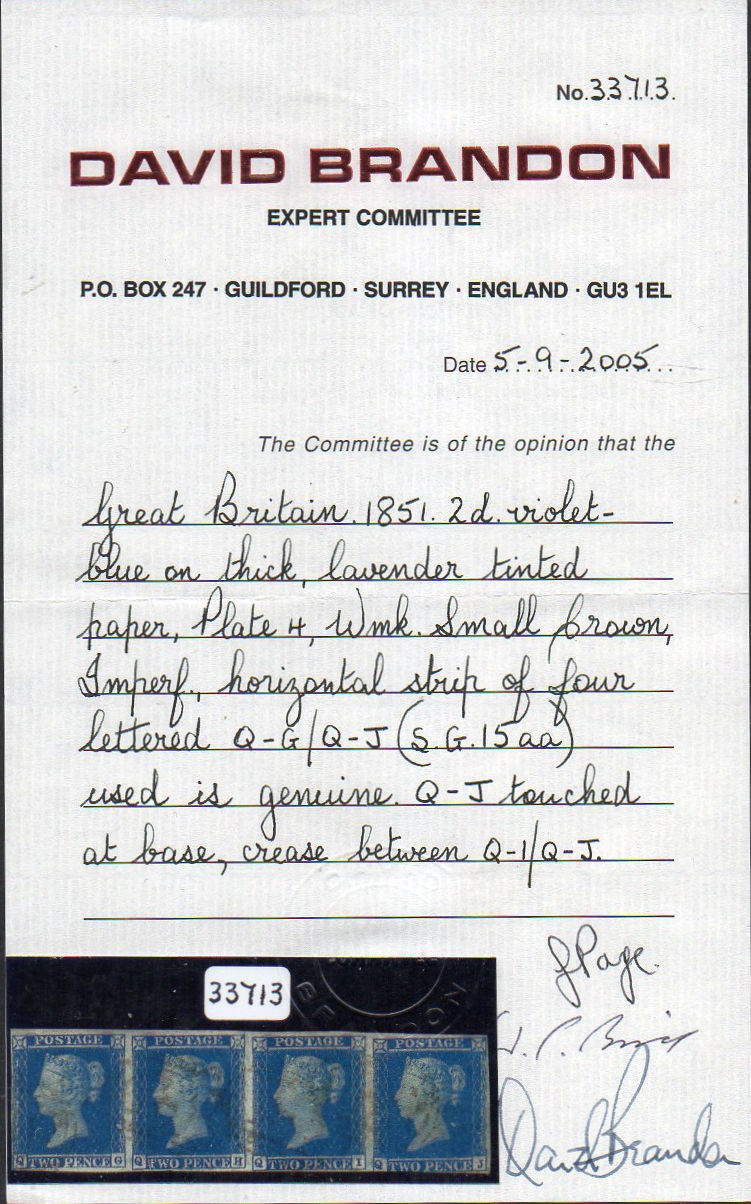 No. 33713.
DAVID BRANDON
EXPERT COMMITTEE
P.O. BOX 247 · GUILDFORD · SURREY · ENGLAND · GU3 1EL
Date 5-9-2005
The Committee is of the opinion that the
Great Britain. 1851. 2d. violet-
blue on thick, lavender tinted
paper, Plate 4, Wmk. Small Crown,
Imperf., horizontal strip of four
lettered Q-G/Q-J (S.G. 15aa)
used is genuine. Q-J touched
at base, crease between Q-I/Q-J.
J Page.
David Brandon
33713
POSTAGE POSTAGE POSTAGE POSTAGE
Q TWO PENCE G Q TWO PENCE H Q TWO PENCE I Q TWO PENCE J